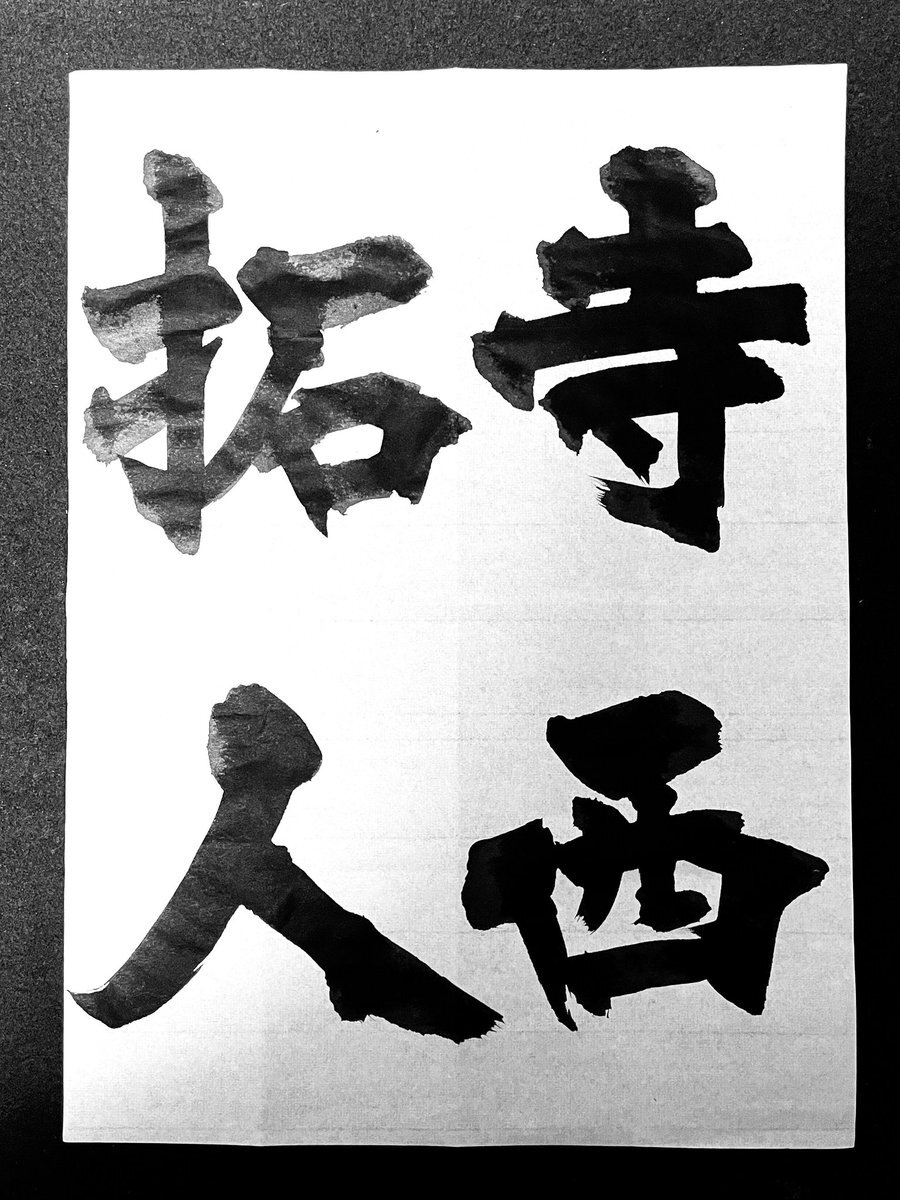 寺西
拓人